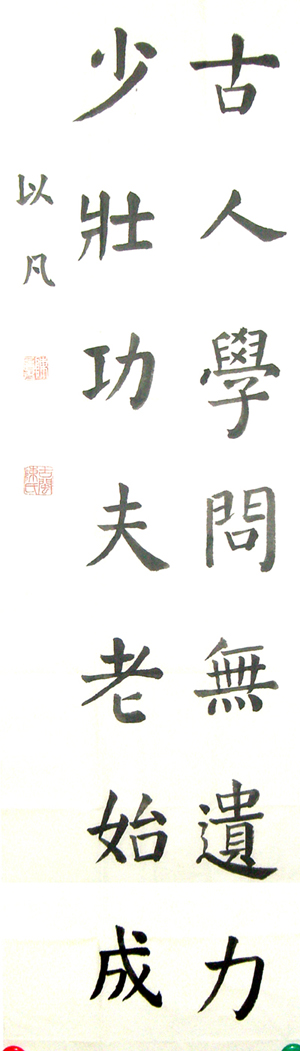 古人學問無遺力
少壯功夫老始成
以凡